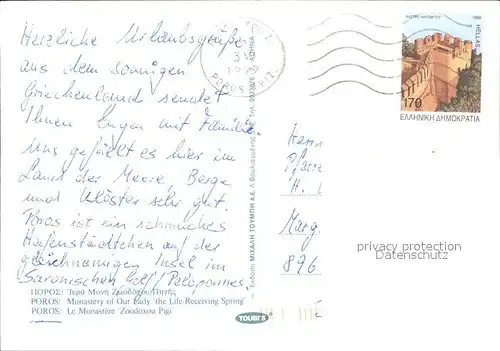 Herzliche Urlaubsgrüße
aus dem sonnigen
Griechenland sendet
Ihnen Eugen mit Familie.
Uns gefällt es hier im
Land der Meere, Berge
und Klöster sehr gut.
Poros ist ein schmuckes
Hafenstädtchen auf der
gleichnamigen Insel im
Saronischen Golf/Peloponnes.
ΠΟΡΟΣ: Ἱερὰ Μονὴ Ζωοδόχου Πηγῆς
POROS: Monastery of Our Lady 'the Life-Receiving Spring'
POROS: Le Monastère 'Zoodoxou Pigi'
TOUBI'S
Εκδοση ΜΙΧΑΛΗ ΤΟΥΜΠΗ Α.Ε.
POROS
1998
HELLAS
170
ΕΛΛΗΝΙΚΗ ΔΗΜΟΚΡΑΤΙΑ
Herrn
Pfarre
H.
Marg
896
privacy protection
watermark